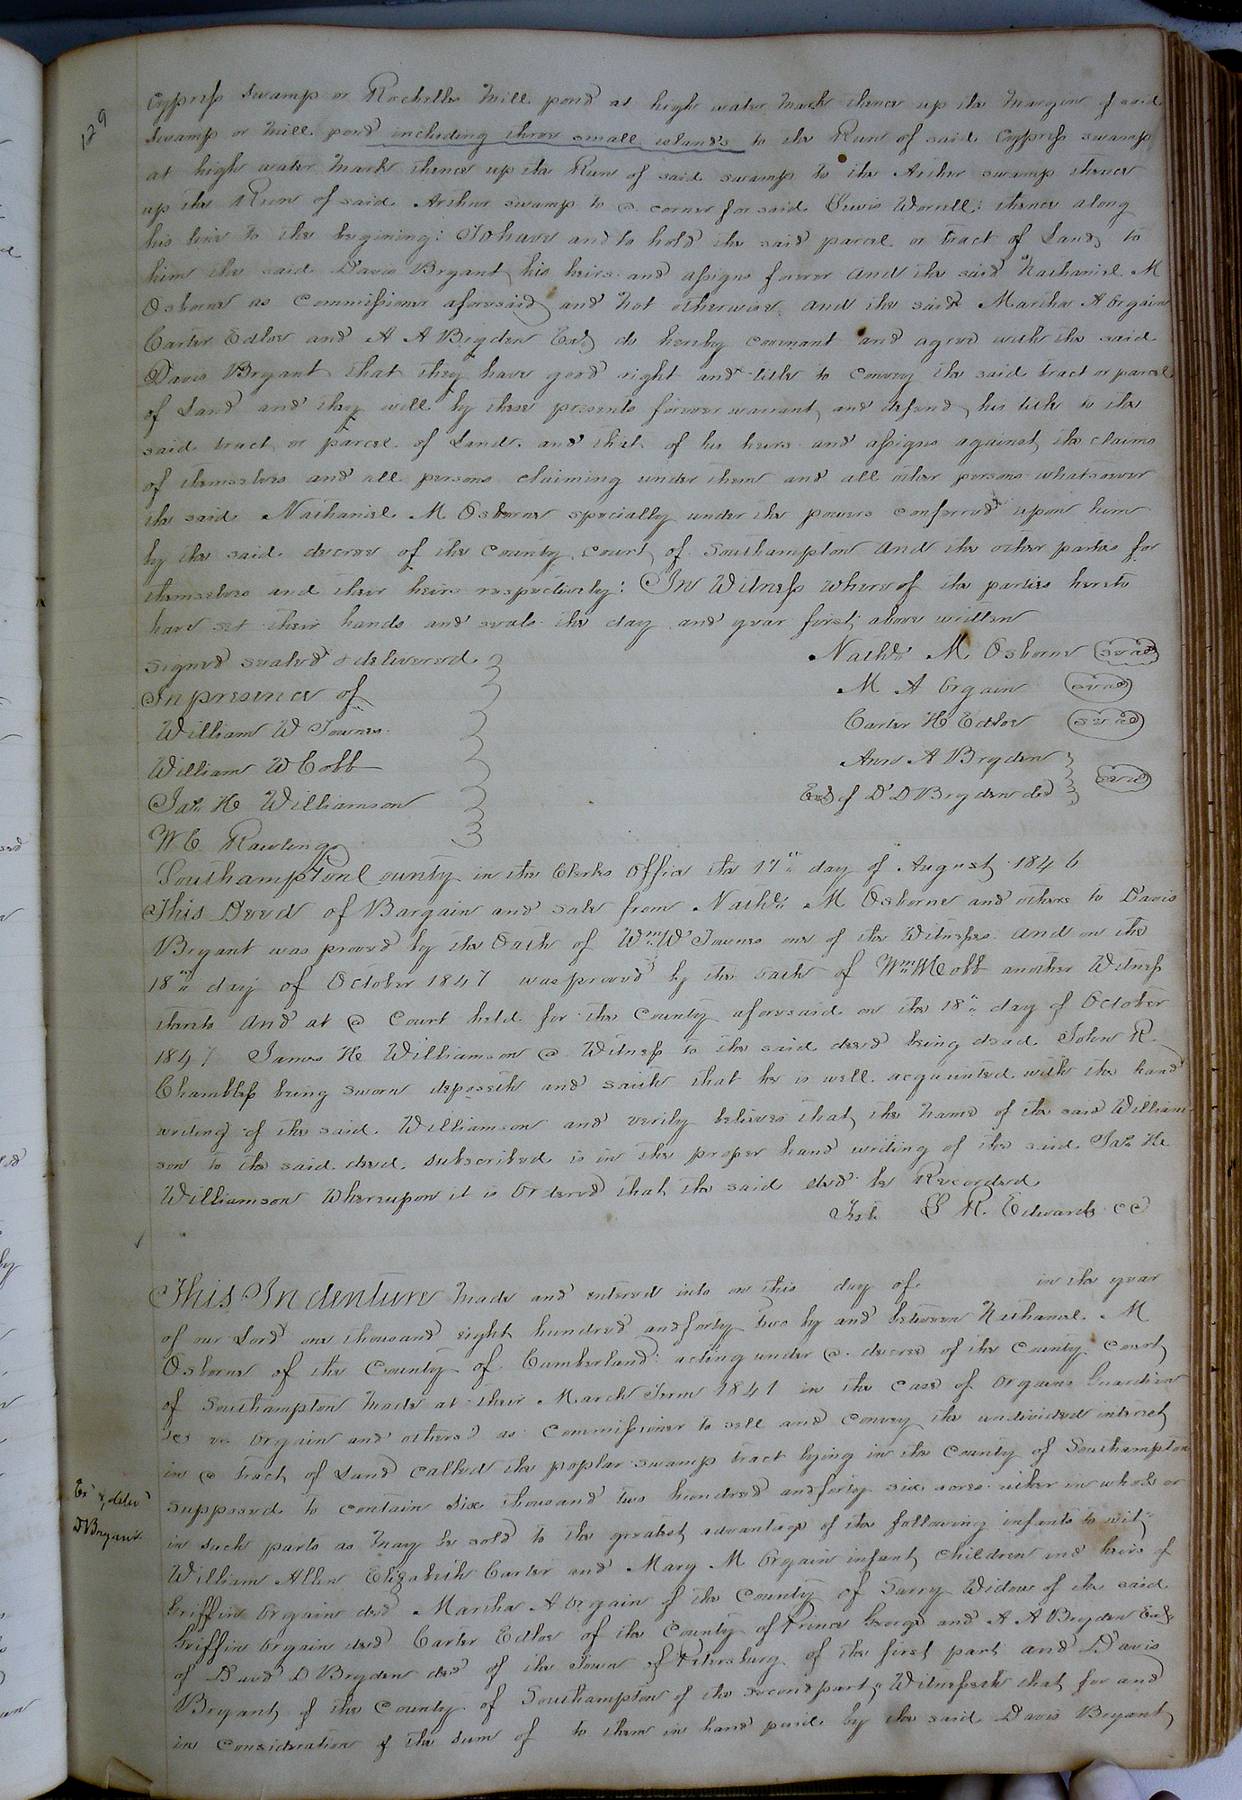 129
Cypress Swamp or Rochelles Mill pond at high water mark thence up the margin of said
Swamp or Mill pond including three small islands to the Run of said Cypress swamp
at high water mark thence up the Run of said swamp to the Arthur swamp thence
up the Run of said Arthur swamp to a corner for said Lewis Worrell: thence along
his line to the begining: To have and to hold the said parcel or tract of Land, to
him the said Davis Bryant his heirs and assigns forever And the said Nathaniel M
Osborne as Commissioner aforesaid and not otherwise, and the said Martha A Orgain
Carter Edloe and A A Bryden Exx do hereby covenant and agree with the said
Davis Bryant that they have good right and title to convey the said tract or parcel
of Land and they will by these presents forever warrant and defend his title to the
said tract or parcel of Land, and that of his heirs and assigns against the claims
of themselves and all persons claiming under them and all other persons whatsoever
the said Nathaniel M Osborne specially under the powers conferred upon him
by the said decree of the County court of Southampton And the other parties for
themselves and their heirs respectively: In Witness whereof the parties hereto
have set their hands and seals the day and year first above written
Signed sealed & delivered
In presence of
William W Townes
William W Cobb
Jas H Williamson
W C Rawlings
Nathl M Osborne seal
M A Orgain seal
Carter H Edloe seal
Ann A Bryden
Exx of D D Bryden decd seal
Southampton County in the Clerks Office the 17th day of August 1846
This Deed of Bargain and sale from Nathl M Osborne and others to Davis
Bryant was proved by the Oath of Wm W Townes one of the Witnesses And on the
18th day of October 1847 was proved by the oath of Wm W Cobb another Witness
thereto And at a Court held for the County aforesaid on the 18th day of October
1847 James H Williamson a Witness to the said deed being dead John R.
Chambliss being sworn deposeth and saith that he is well acquainted with the hand
writing of the said Williamson and verily believes that the name of the said William
son to the said deed subscribed is in the proper hand writing of the said Jas H
Williamson Whereupon it is Ordered that the said deed be Recorded
Test L R. Edwards CC
This Indenture Made and entered into on this day of in the year
of our Lord one thousand eight hundred and forty two by and between Nathaniel M
Osborne of the County of Cumberland acting under a decree of the County Court
of Southampton made at their March Term 1841 in the case of Orgains Guardian
&c vs Orgain and others as Commissioner to sell and convey the undivided interest
in a tract of Land called the poplar swamp tract lying in the County of Southampton
Ex & deld
D Bryant
supposed to contain Six thousand two hundred and forty six acres either in whole or
in such parts as may be sold to the greatest advantage of the following infants to wit;
William Allen Elizabeth Carter and Mary M Orgain infant children and heirs of
Griffin Orgain decd Martha A Orgain of the County of Surry Widow of the said
Griffin Orgain decd Carter Edloe of the County of Prince George and A A Bryden Exx
of David D Bryden decd of the Town of Petersburg of the first part and Davis
Bryant of the County of Southampton of the second part, Witnesseth that for and
in Consideration of the sum of to them in hand paid by the said Davis Bryant